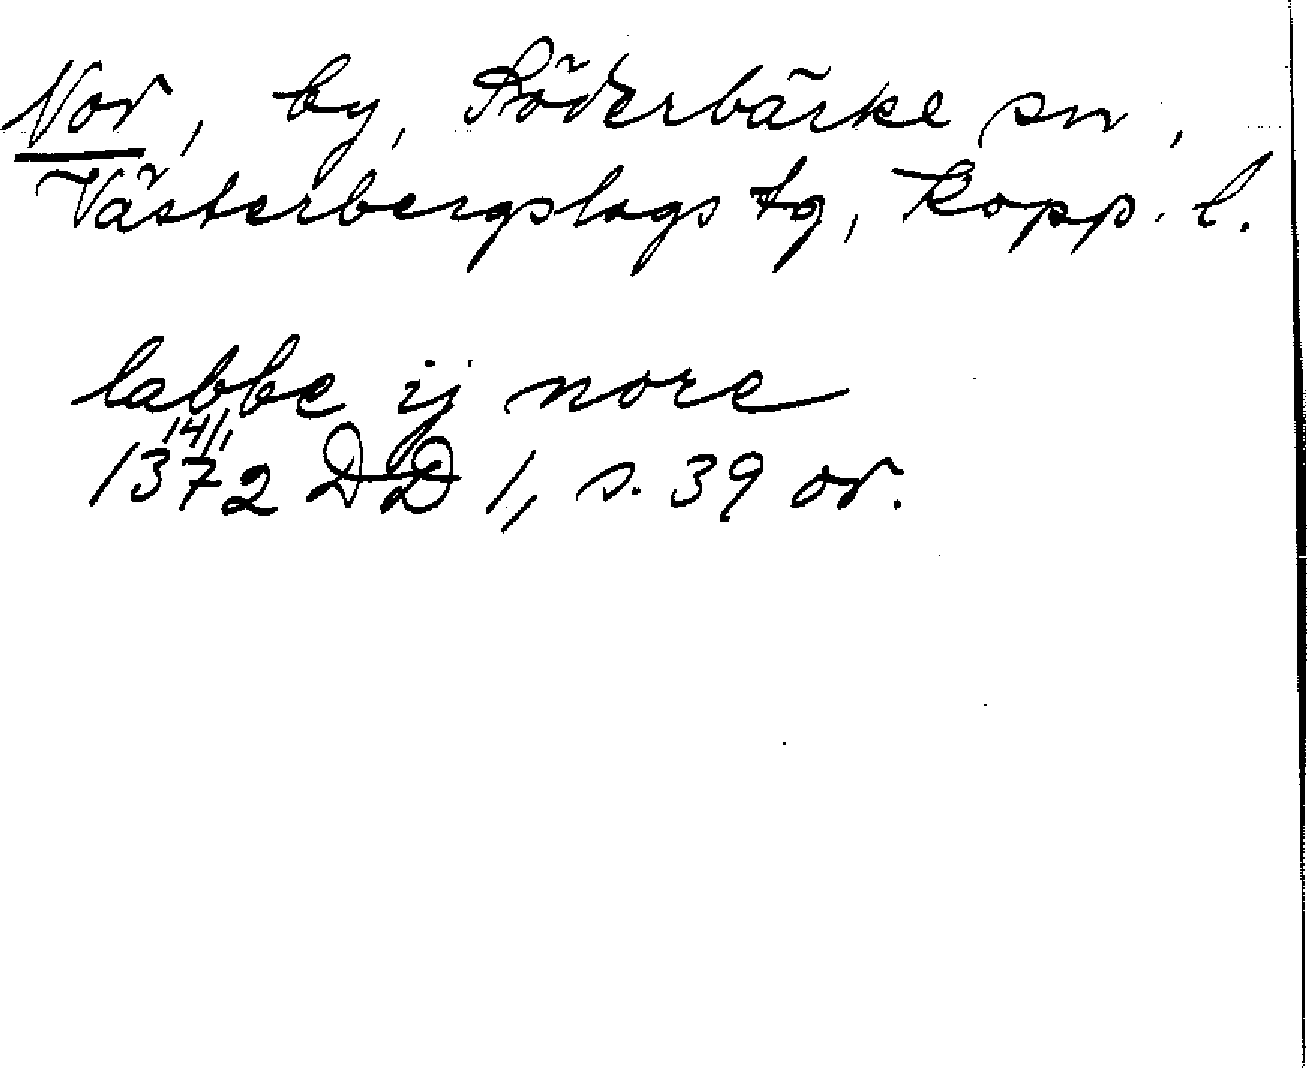 Nor, by, Söderbärke sn,
Västerbergslags tg, Kopp. l.
labbe ij nore
14/1
1372 DD 1, s. 39 or.